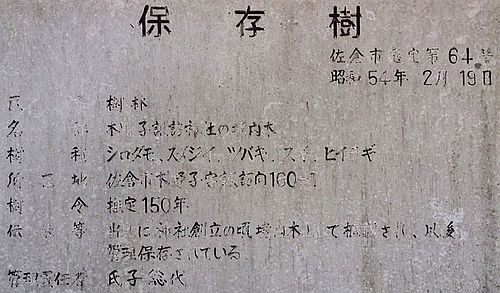 保存樹
佐倉市指定第64号
昭和54年2月19日
区 樹林
名 木 子諏訪神社の境内木
樹種 シロダモ、スダジイ、ツバキ、スギ、ヒイラギ
所在地 佐倉市木 子字諏訪向160
樹令 推定150年
伝 等 当 に神社創立の頃境内木として植 され、以 
管理保存されている
管理責任者 氏子総代